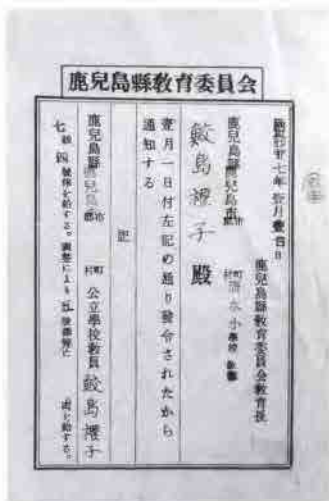 鹿兒島縣教育委員会
昭和廿七年壱月壱日
鹿兒島縣教育委員会教育長
鹿兒島縣鹿兒島市郡 町村 清水小學校
鮫島 子 殿
壹月一日付左記の通り發令されたから
通知する
記
鹿兒島縣鹿兒島市郡 町村 公立學校教員 鮫島 子
七級 四 號俸を給する。調整により 號俸
に給する。